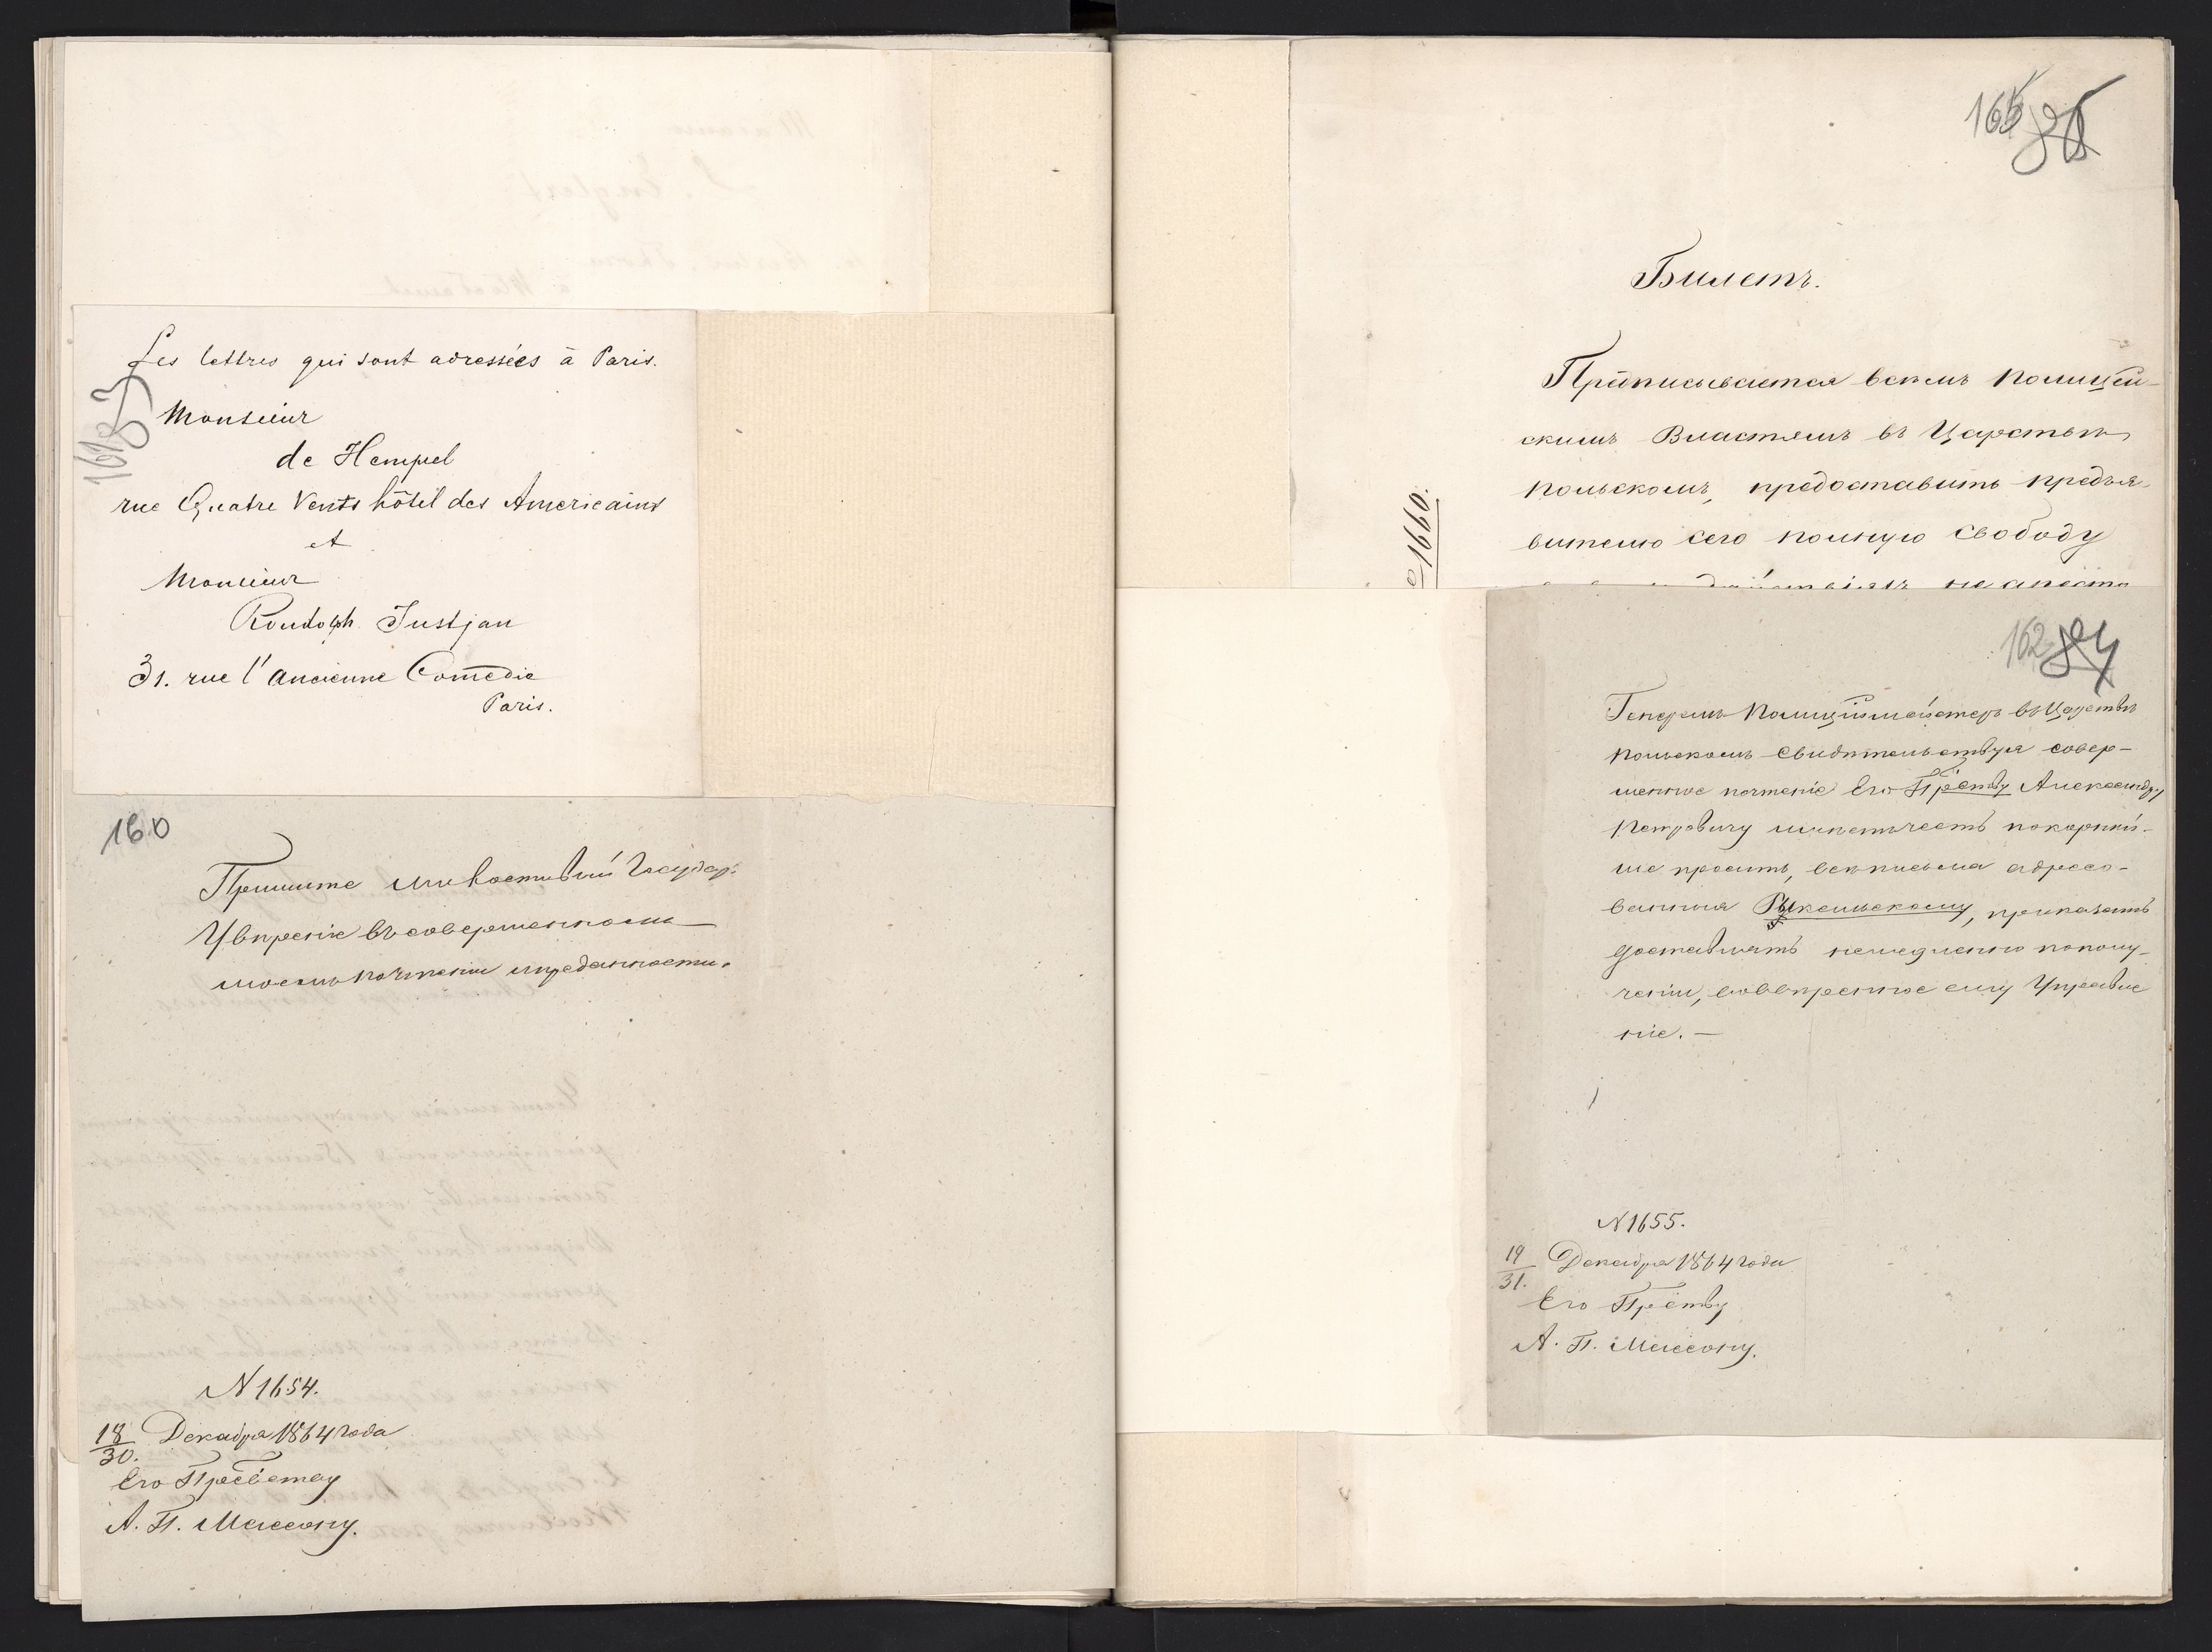 Les lettres qui sont adressées à Paris.
Monsieur
de Hempel
rue Quatre Vents hôtel des Americains
et
Monsieur
Roudolph Justjan
31. rue l'ancienne Comedie
Paris.
161 83
160
Примите милостивый Государь
Увѣреніе въ совершенномъ
моемъ почтеніи и преданности.
N 1654.
18/30. Декабря 1864 года
Его Прев-ству
А. П. Массону.
165 86
Билетъ.
Предписывается всѣмъ Полицей-
скимъ Властямъ въ Царствѣ
Польскомъ, предоставить предъя-
вителю сего полную свободу
1660.
162 84
Генералъ Полицiймейстеръ въ Царствѣ
Польскомъ свидѣтельствуя совер-
шенное почтеніе Его Пр-ству Александру
Петровичу имѣетъ честь покорнѣй-
ше просить, всѣ письма адресо-
ванныя, приказать
доставлять немедленно по полу-
ченіи, во ввѣренное ему Управле
ніе. —
N 1655.
19/31. Декабря 1864 года
Его Пр-ству
А. П. Массону.